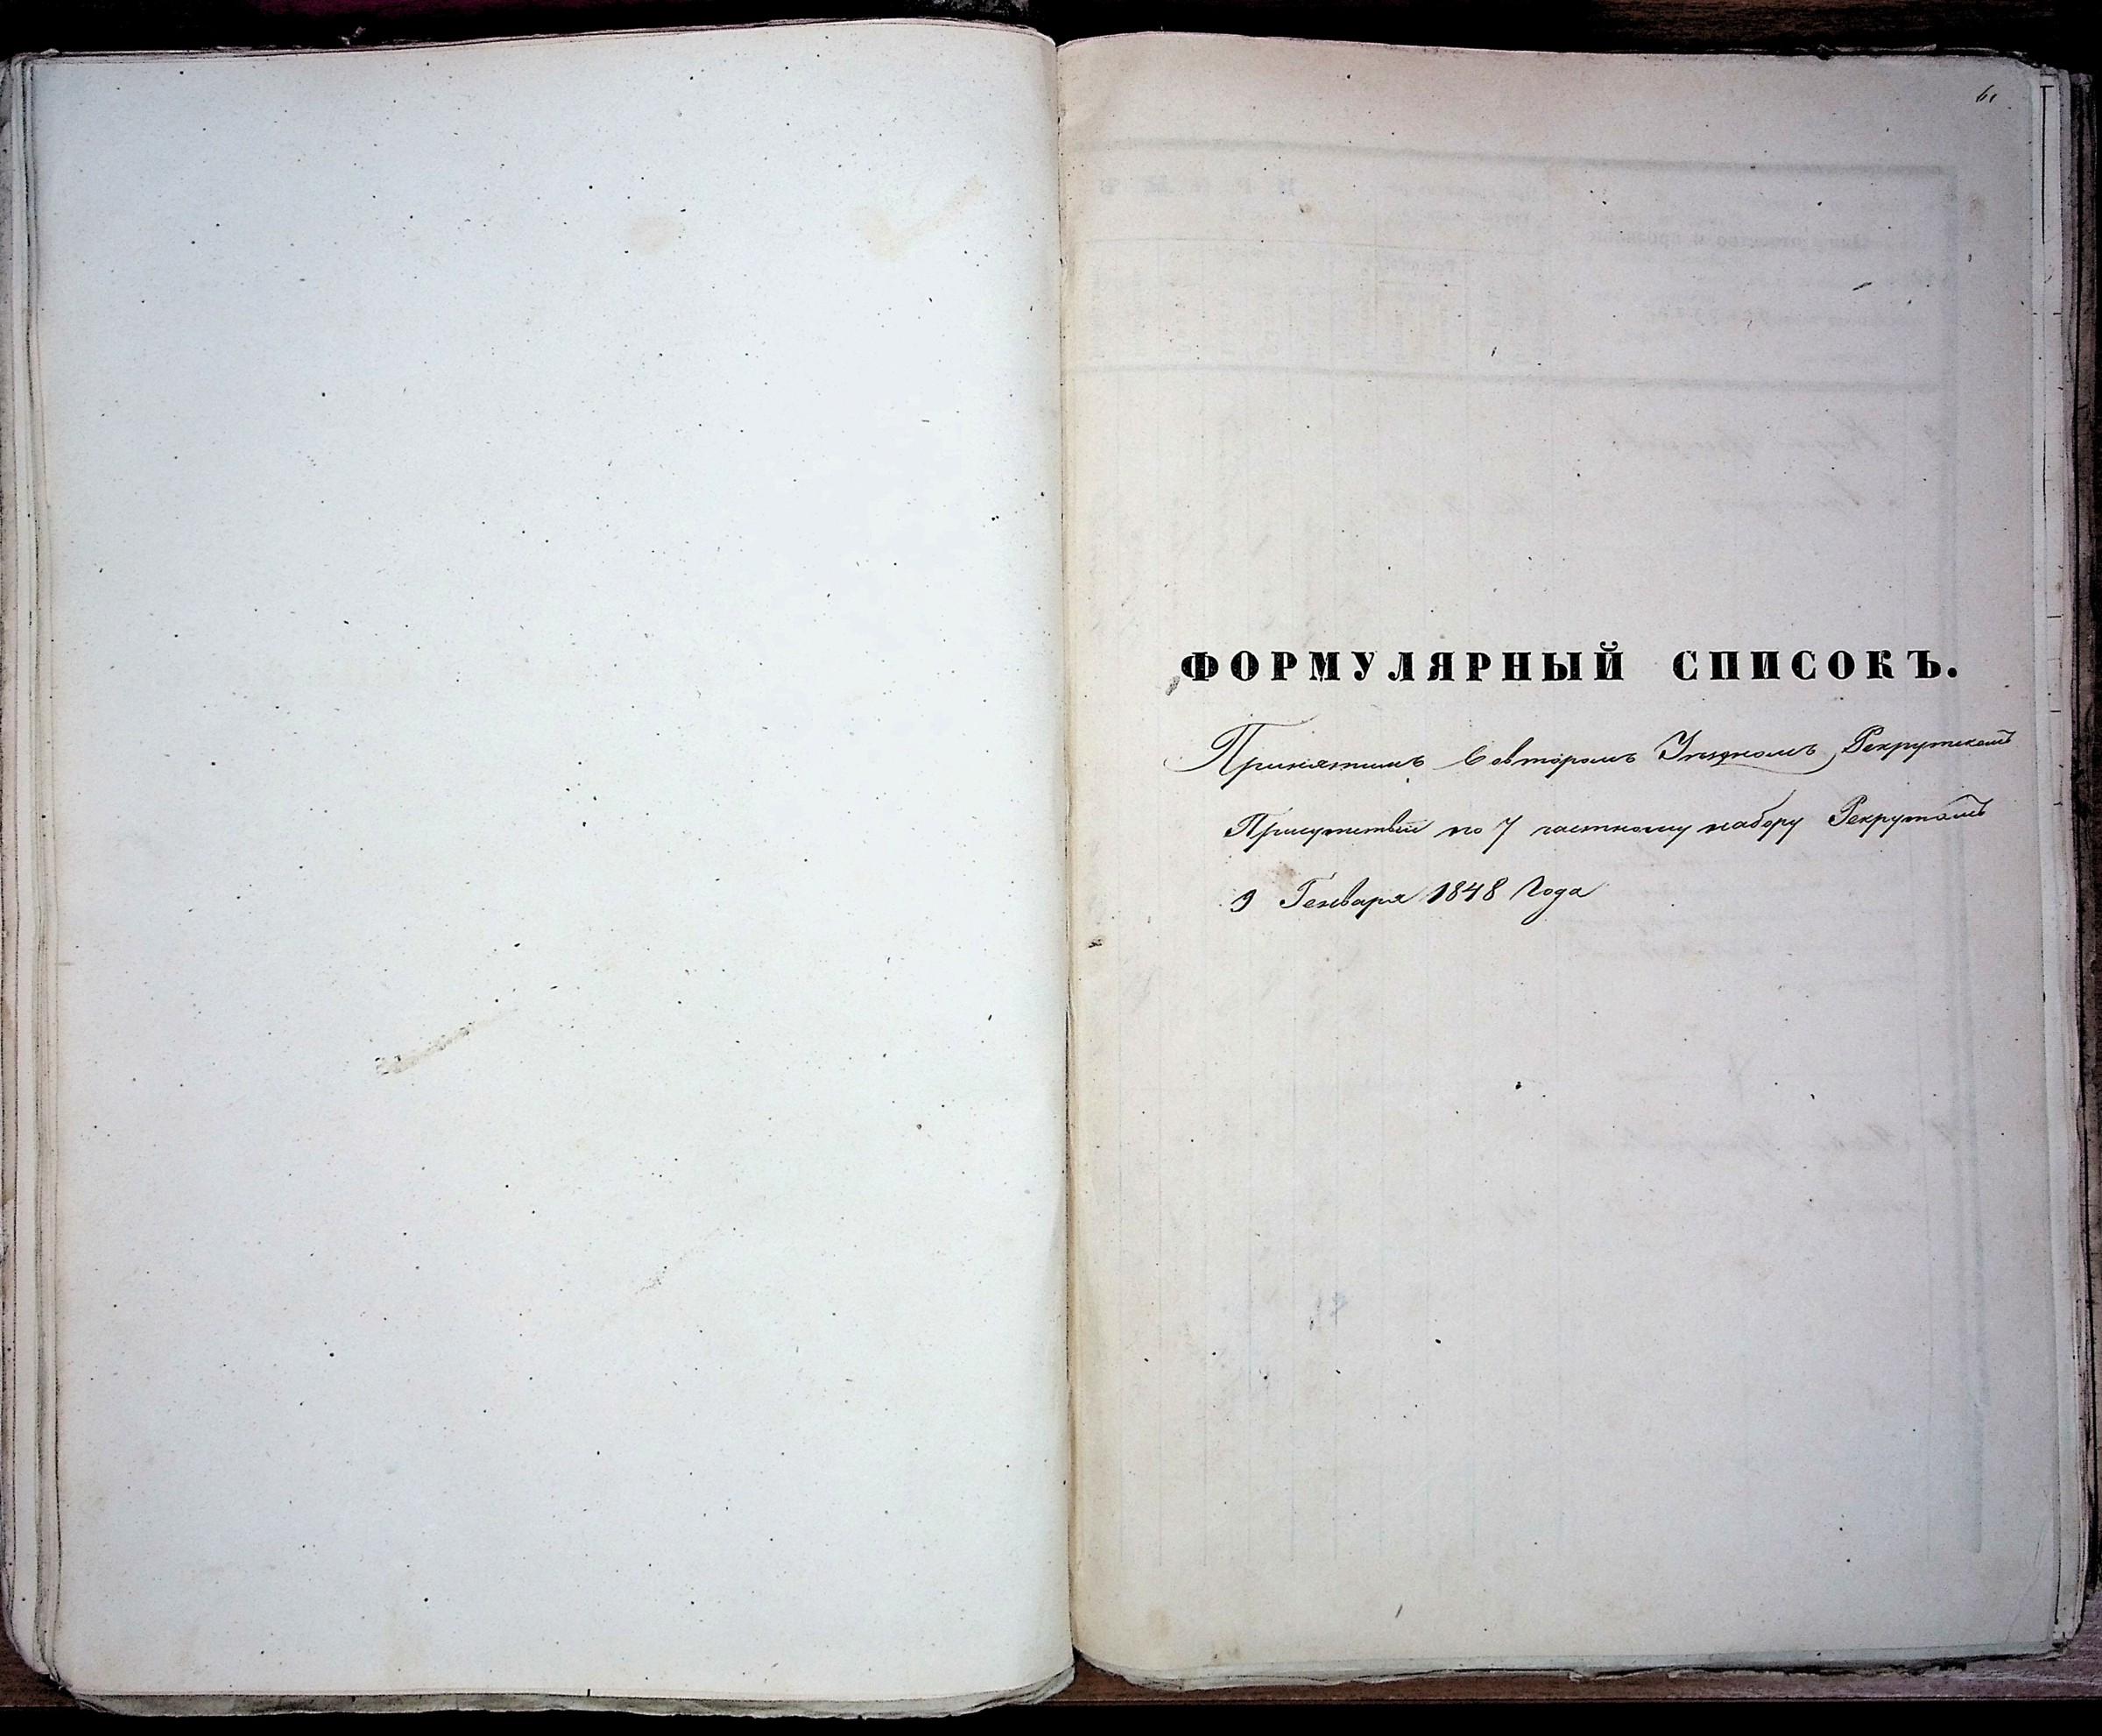 ФОРМУЛЯРНЫЙ СПИСОКЪ.
Принятымъ Вовторомъ Уѣздномъ Рекрутскомъ
Присутствіи по 7 частному набору Рекрутамъ
9 Генваря 1848 Года